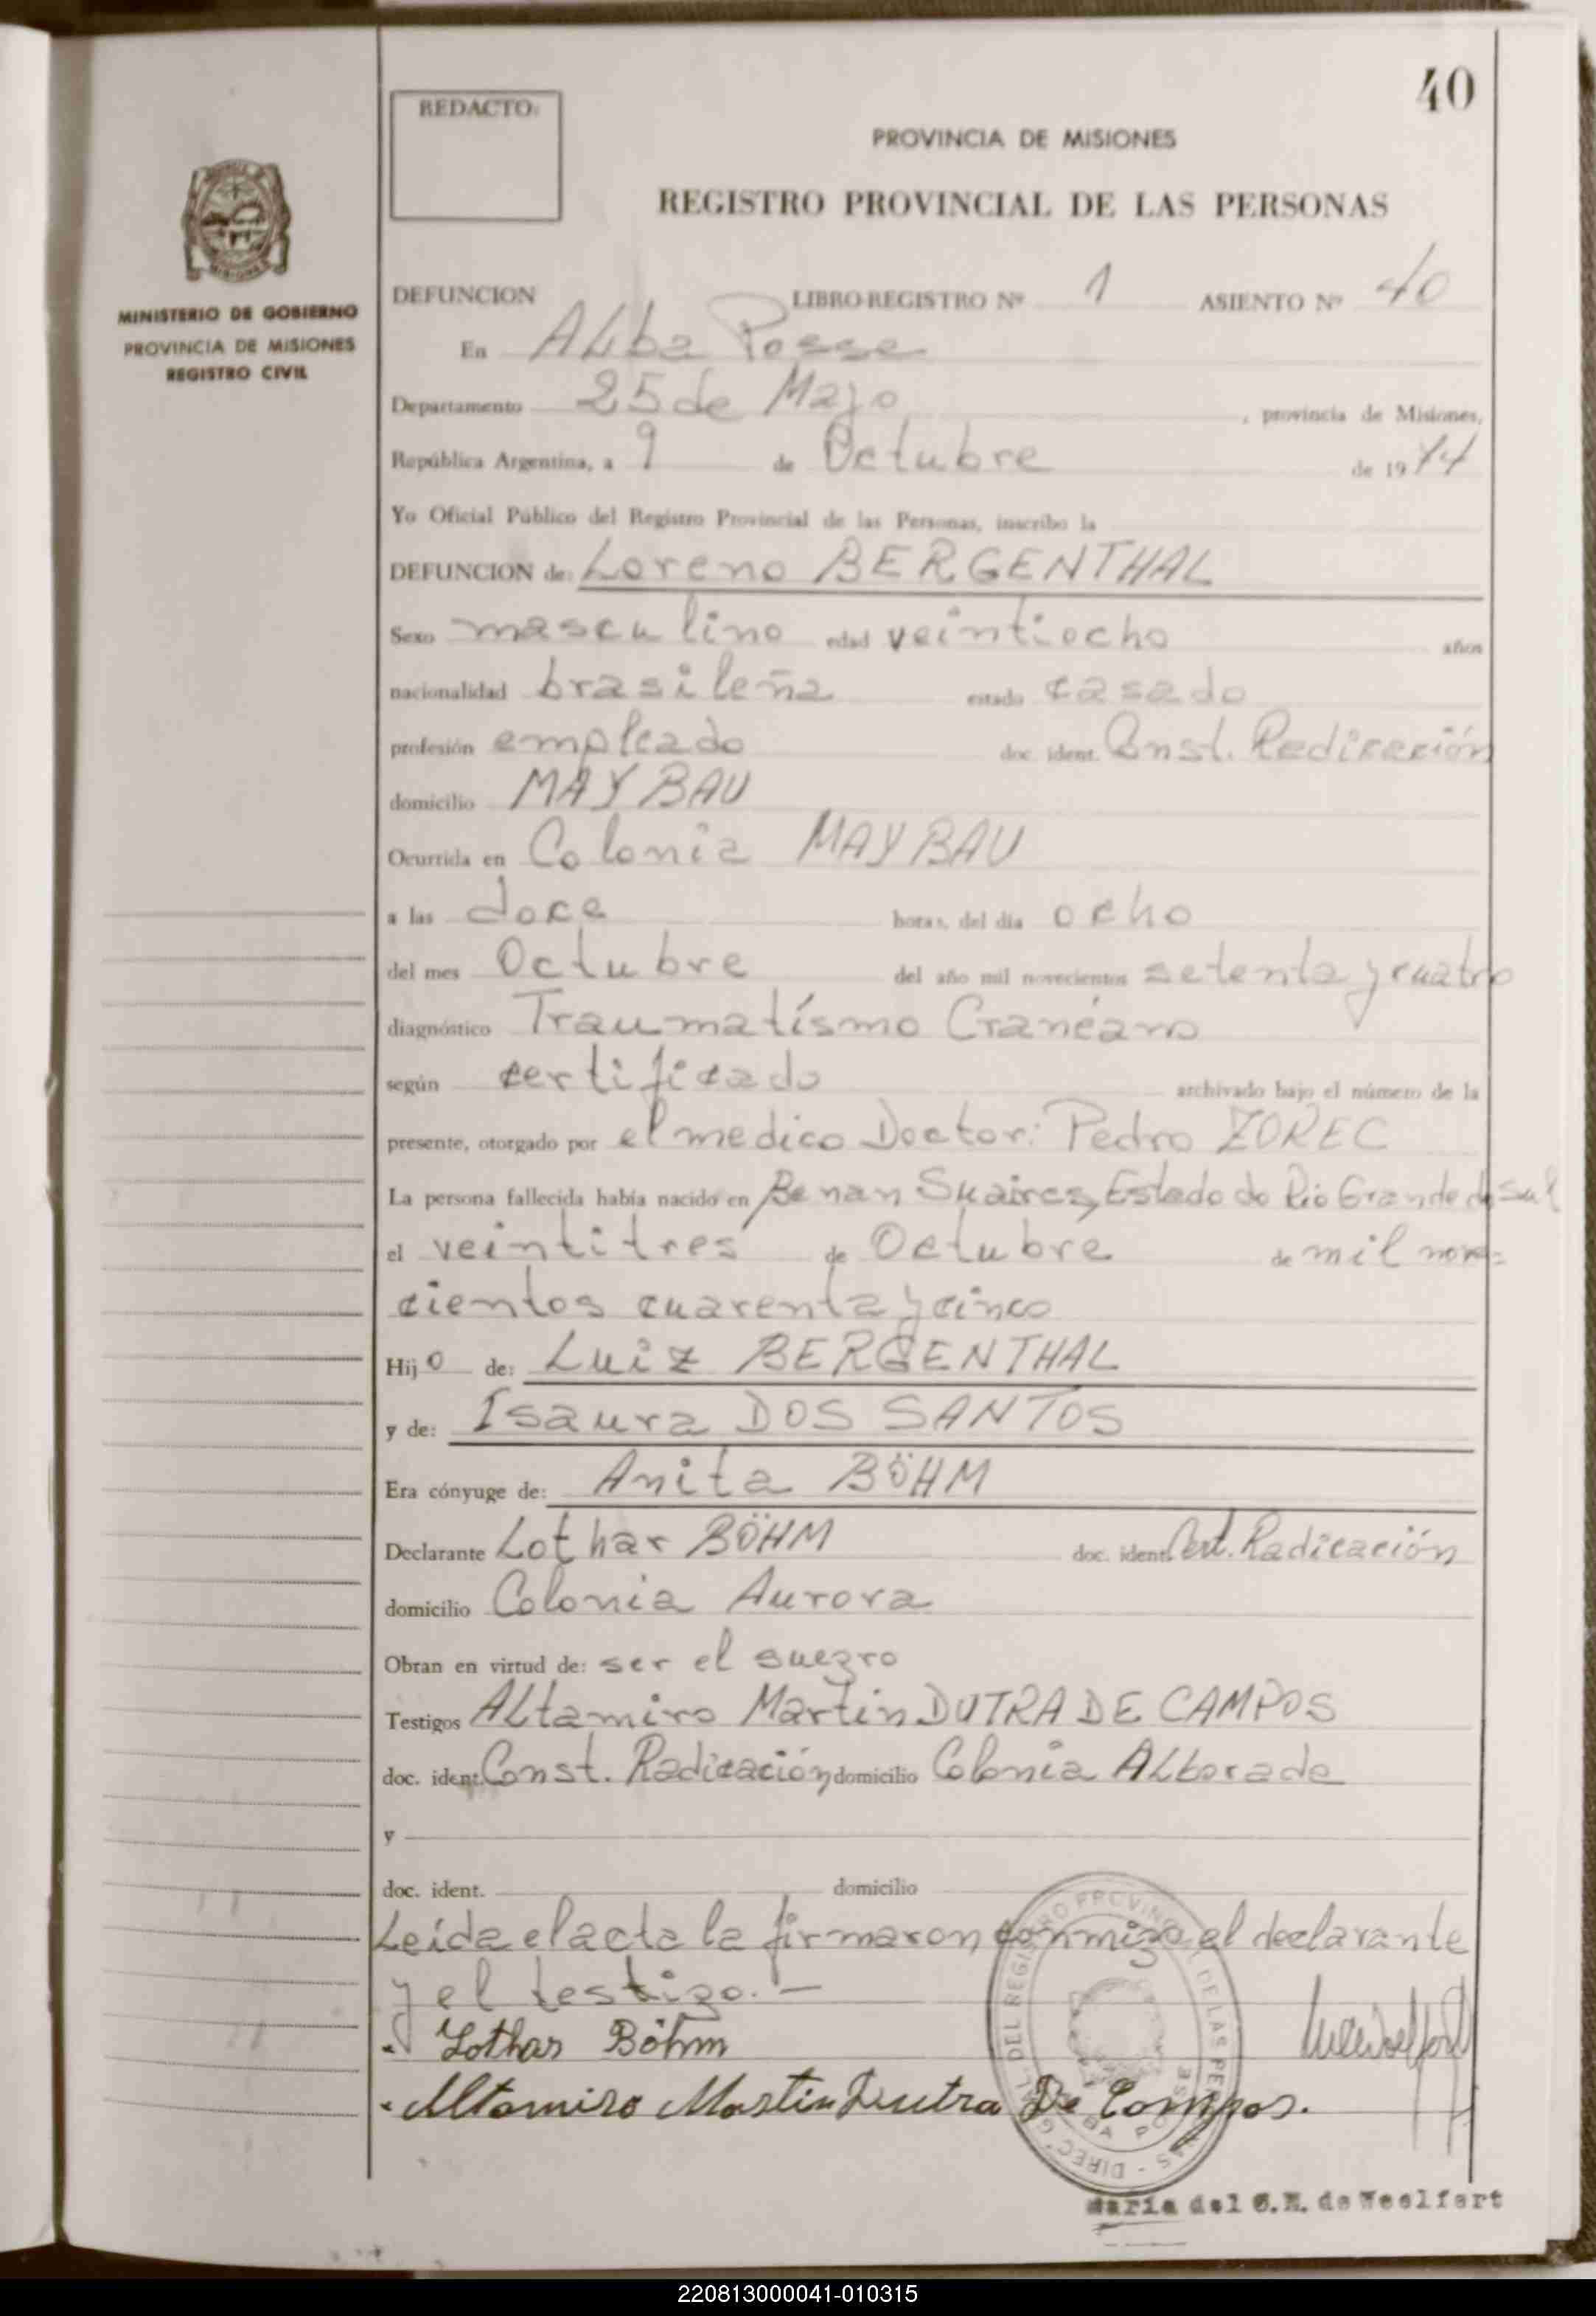 40
REDACTO:
PROVINCIA DE MISIONES
REGISTRO PROVINCIAL DE LAS PERSONAS
MISIONES
MINISTERIO DE GOBIERNO
PROVINCIA DE MISIONES
REGISTRO CIVIL
DEFUNCION LIBRO-REGISTRO Nº 1 ASIENTO Nº 40
En ALba Posse
Departamento 25 de Mayo, provincia de Misiones,
República Argentina, a 9 de Octubre de 1974
Yo Oficial Público del Registro Provincial de las Personas, inscribo la
DEFUNCION de: Loreno BERGENTHAL
Sexo masculino edad veintiocho años
nacionalidad brasileña estado casado
profesión empleado doc. ident. Const. Radicación
domicilio MAY BAU
Ocurrida en Colonia MAY BAU
a las doce horas, del día ocho
del mes Octubre del año mil novecientos setenta y cuatro
diagnóstico Traumatísmo Cranéano
según certificado archivado bajo el número de la
presente, otorgado por el medico Doctor: Pedro ZOREC
La persona fallecida había nacido en Benan Suaires, Estado do Rio Grande do Sul
el veintitres de Octubre de mil nove=
cientos cuarenta y cinco
Hijo de: Luiz BERGENTHAL
y de: Isaura DOS SANTOS
Era cónyuge de: Anita BÖHM
Declarante Lothar BÖHM doc. ident. Cert. Radicación
domicilio Colonia Aurora
Obran en virtud de: ser el suegro
Testigos ALtamiro Martin DUTRA DE CAMPOS
doc. ident. Const. Radicación domicilio Colonia ALborada
y
doc. ident. domicilio
Leída el acta la firmaron conmigo el declarante
y el testigo.-
Lothar Böhm
Altamiro Martin Dutra De Campos.
María del C.M. de Woelfert
220813000041-010315